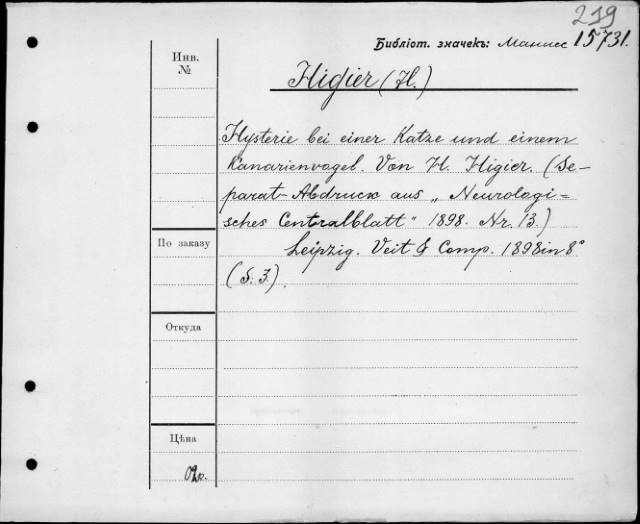 219
Библіот. значекъ: 15731.
Инв.
№
Higier (H.)
Hysterie bei einer Katze und einem
Kanarienvogel. Von H. Higier. (Se-
parat-Abdruck aus „Neurologi=
sches Centralblatt" 1898. Nr. 13.)
По заказу
Leipzig. Veit & Comp. 1898 in 8°
(S. 3).
Откуда
Цѣна